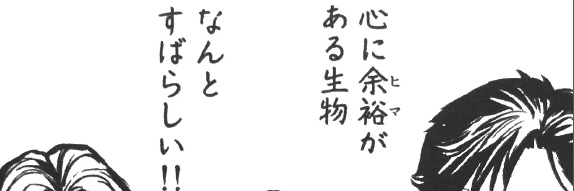 心に余裕が
ある生物
なんと
すばらしい!!
ヒマ